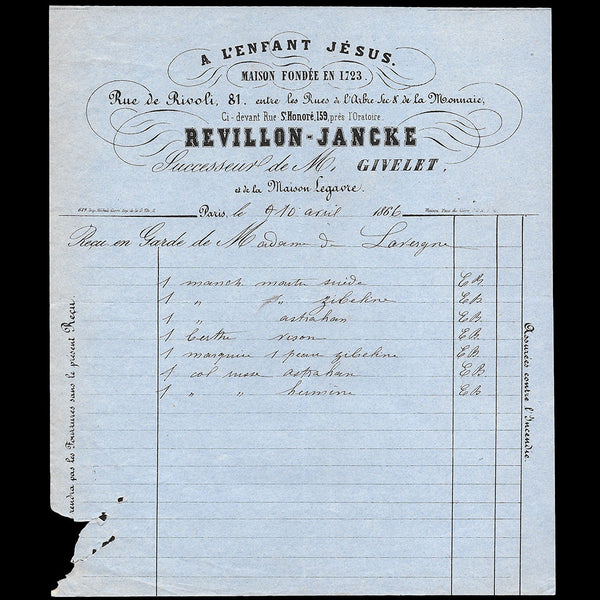 A L'ENFANT JÉSUS.
MAISON FONDÉE EN 1723.
Rue de Rivoli, 81. entre les Rues de l'Arbre-Sec & de la Monnaie,
Ci-devant Rue St. Honoré, 159, près l'Oratoire.
REVILLON-JANCKE
Successeur de M. GIVELET,
et de la Maison Legavre.
Paris, le 10 avril 1866
Reçu en Garde de Madame de Lavergne
1 manch mouton suède E B
1 " " zibeline E B
1 " astrakan E B
1 berthe vison E B
1 marquise 1 peau zibeline E B
1 col russe astrakan E B
1 " " hermine E B
rendra pas les Fourrures sans le présent Reçu.
Assurées contre l'Incendie.